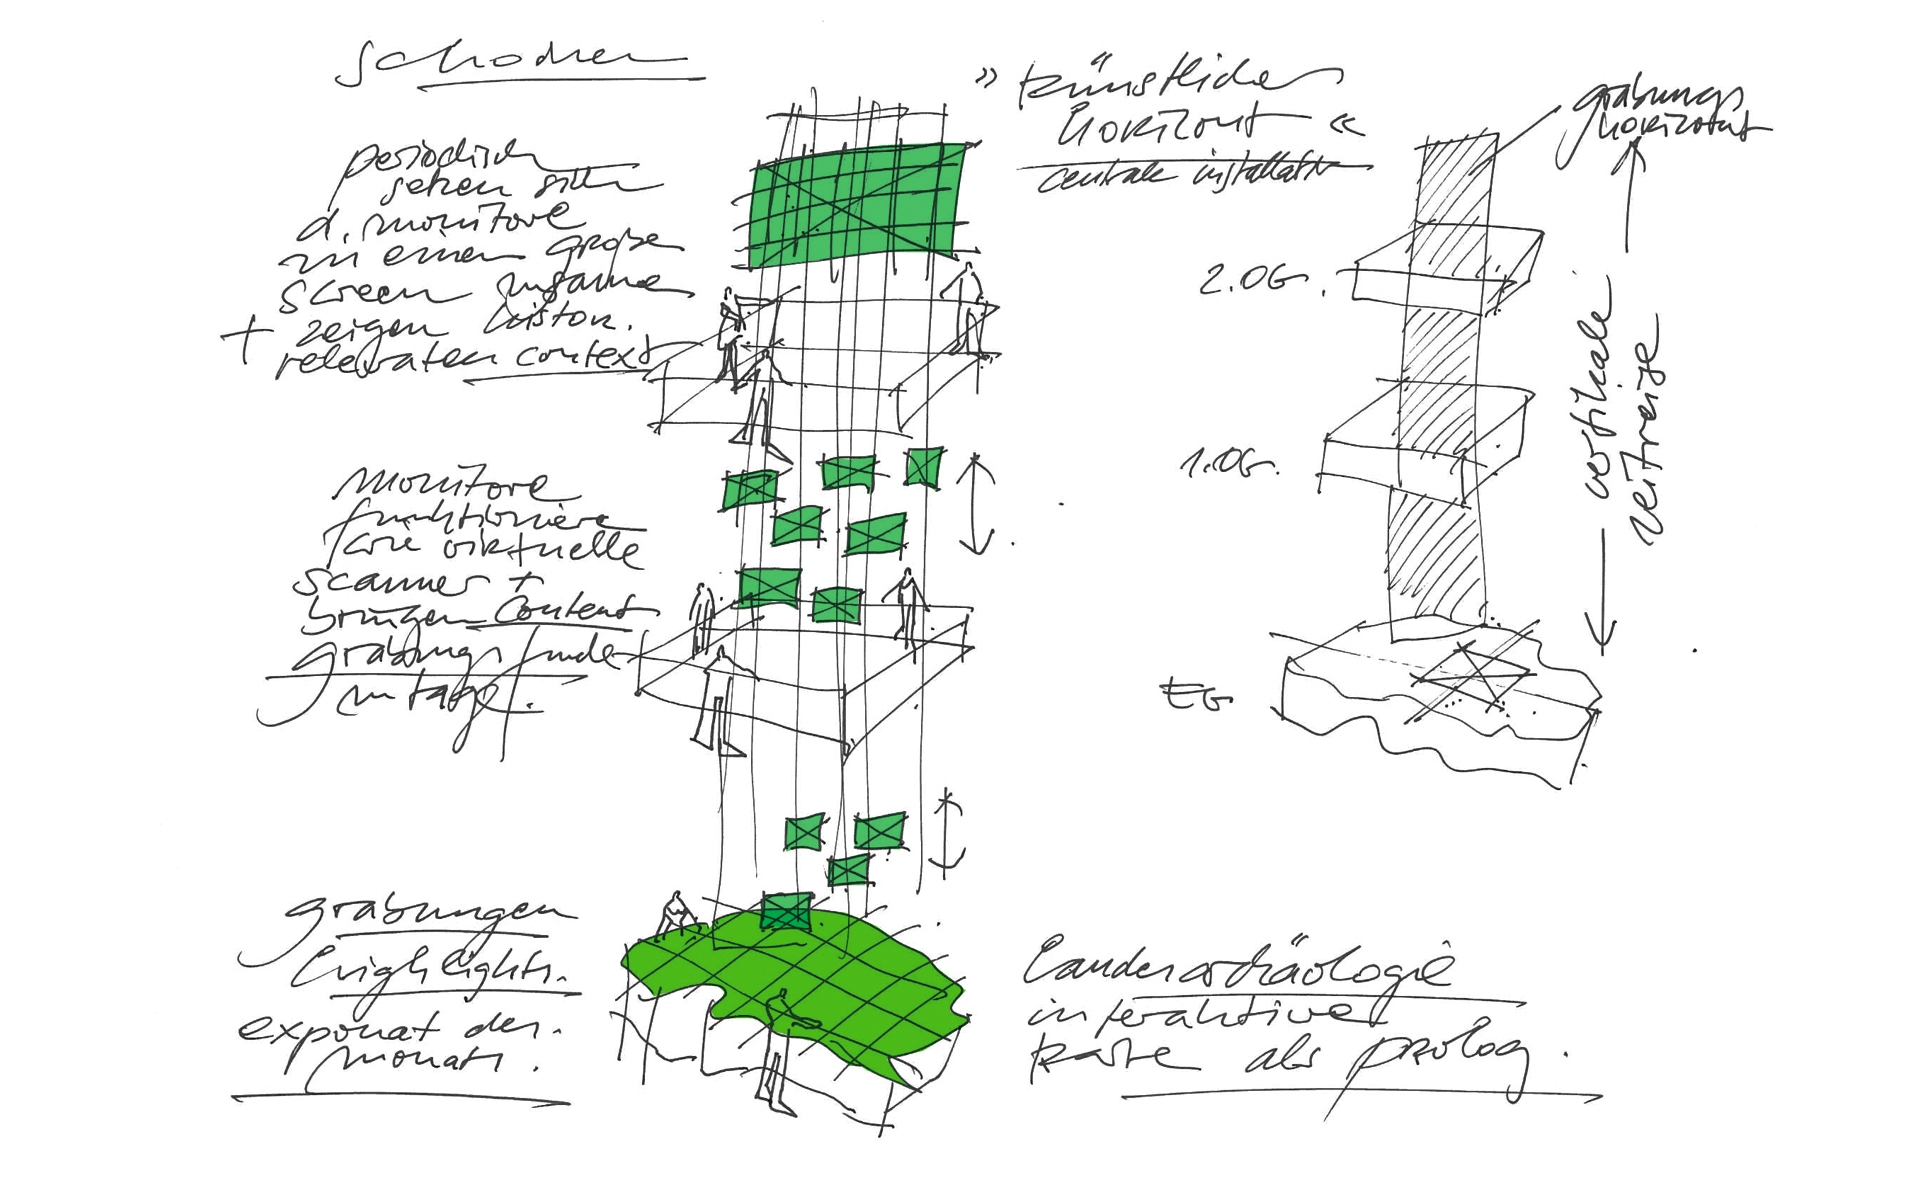 schocken
periodisch
setzen sich
d. monitore
zu einem große
screen zusamme
+ zeigen histor.
relevanten context
monitore
funktioniere
wie virtuelle
scanner +
bringen content
grabungsfunde
zu tage.
grabungen
highlights.
exponat des
monats.
» künstlicher
horizont «
centrale installation
grabungs
horizont
2.OG.
1.OG.
EG
vertikale
zeitreise
Landesarchäologie
interaktive
karte als prolog.